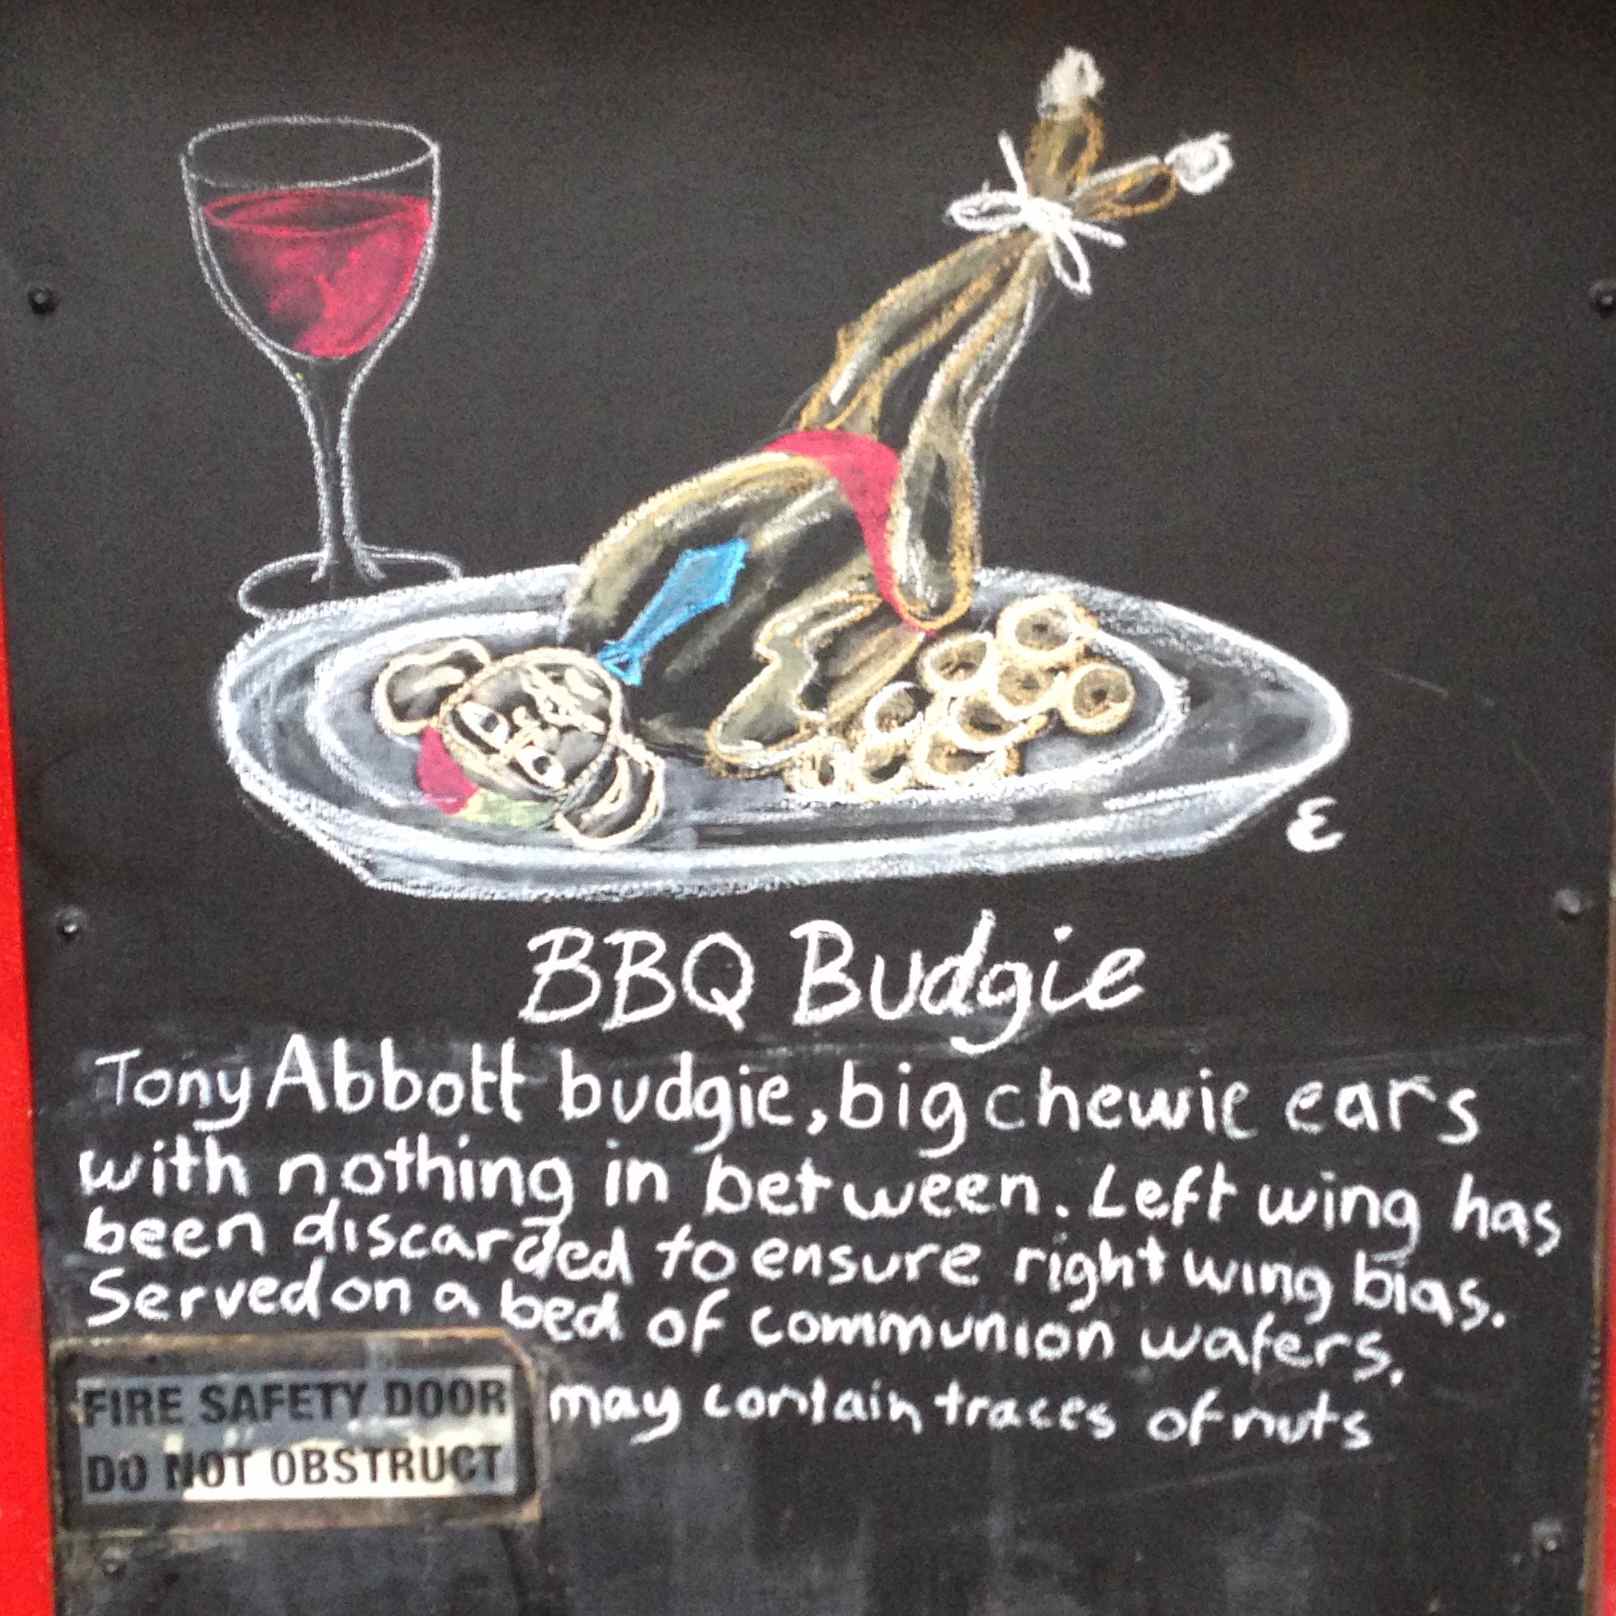 ε
BBQ Budgie
Tony Abbott budgie, big chewie ears
with nothing in between. Left wing has
been discarded to ensure right wing bias.
Served on a bed of communion wafers.
may contain traces of nuts
FIRE SAFETY DOOR
DO NOT OBSTRUCT